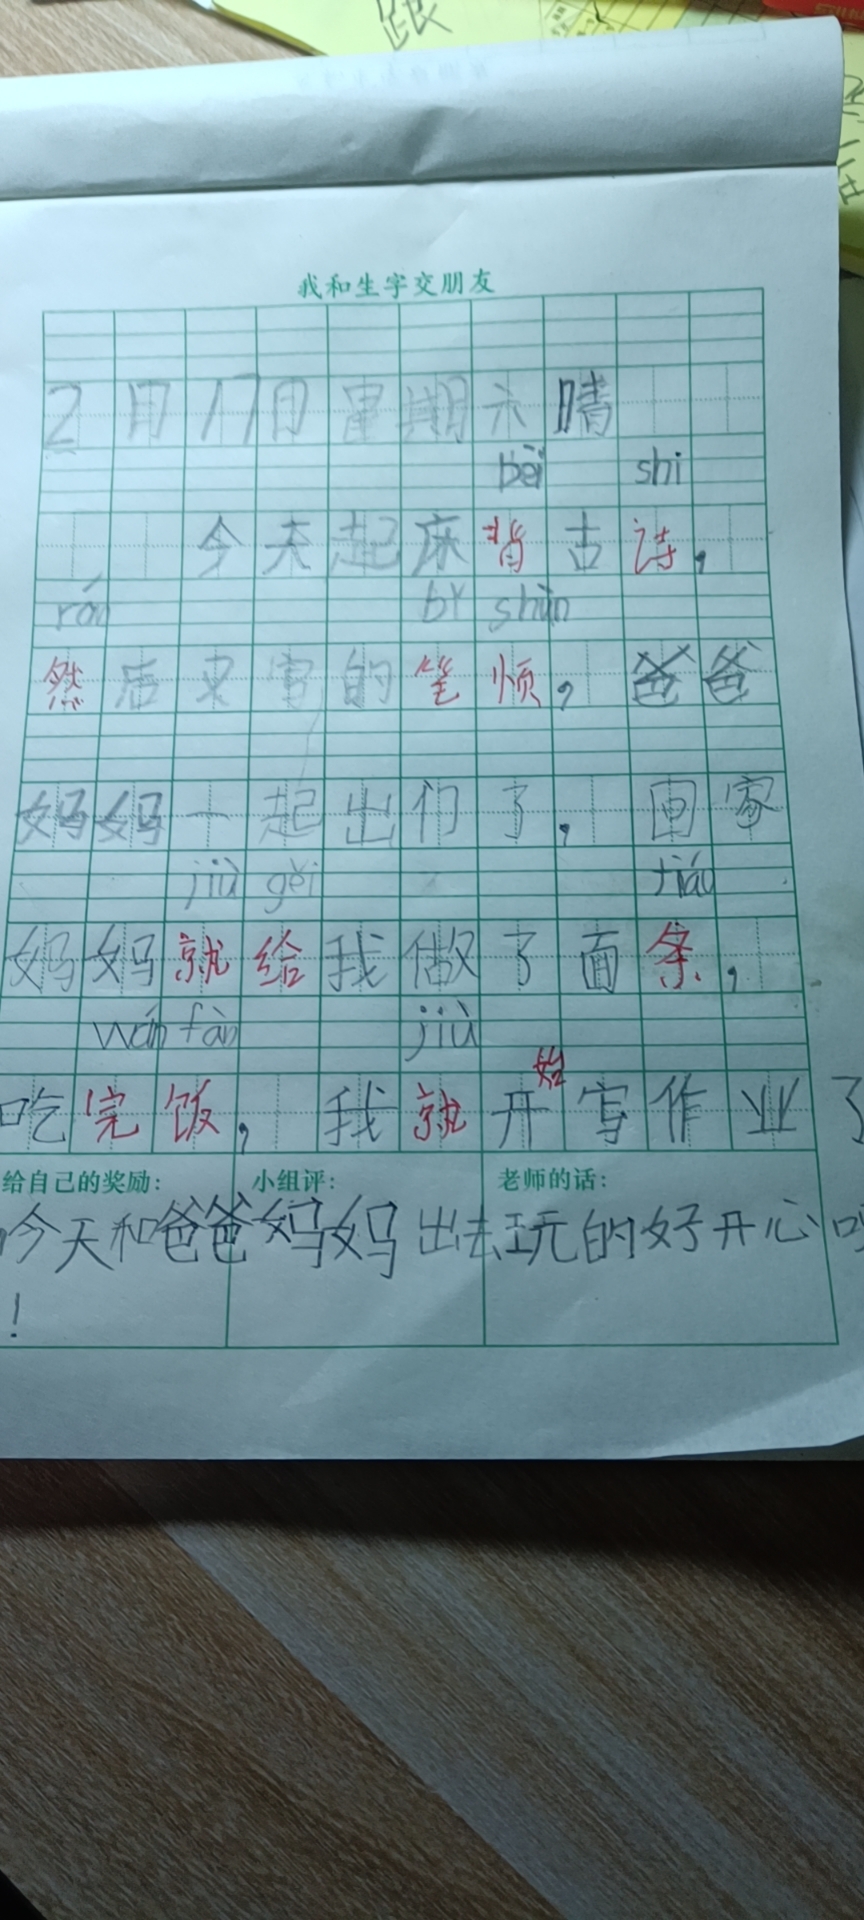 跟
我和生字交朋友
2月17日星期六晴
bèi shi
今天起床背古诗，
rán bǐ shùn
然后又写的笔顺，爸爸
妈妈一起出们了，回家
jiù gěi tiáo
妈妈就给我做了面条，
wán fàn jiù
吃完饭，我就开始写作业了
给自己的奖励： 小组评： 老师的话：
今天和爸爸妈妈出去玩的好开心
！